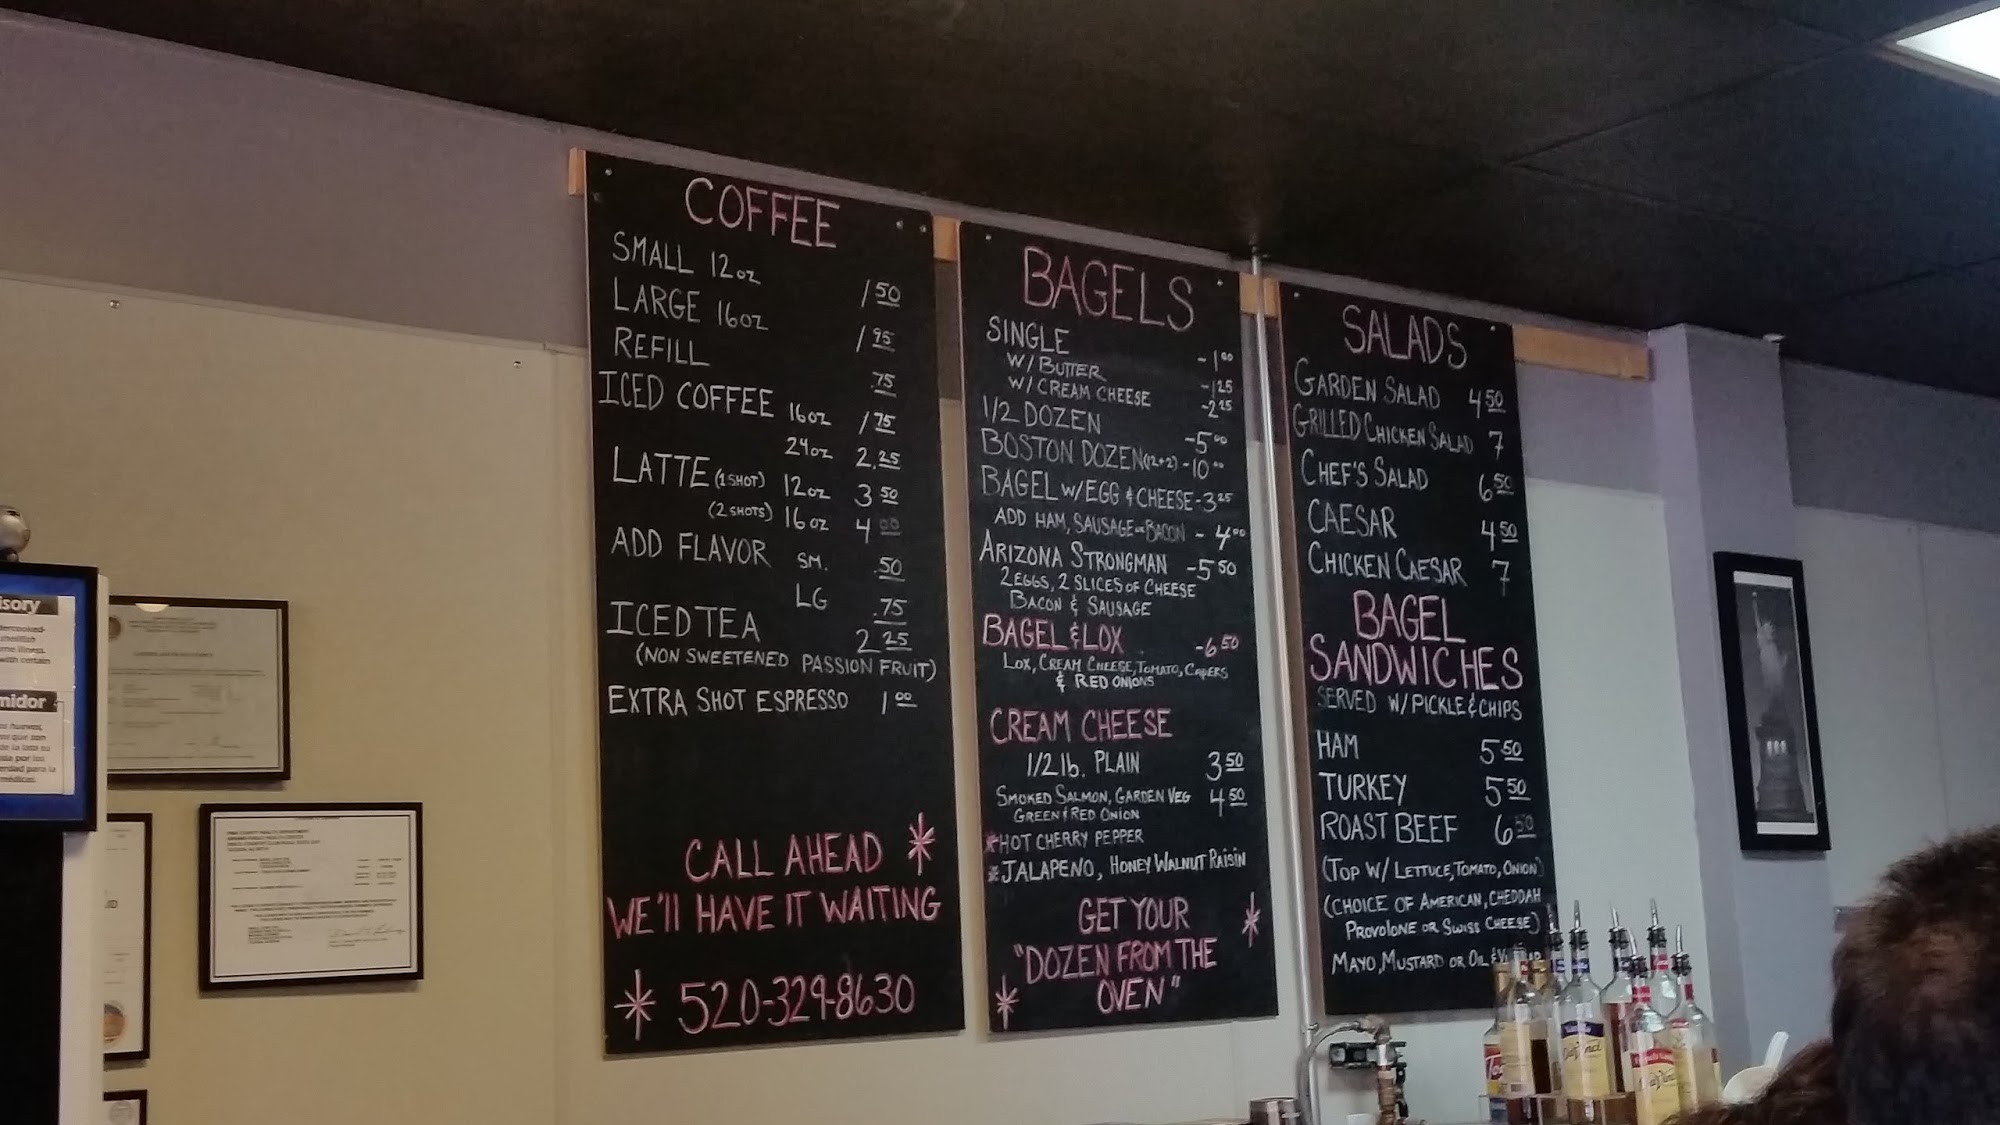 COFFEE
SMALL 12oz 1 50
LARGE 16oz 1 95
REFILL .75
ICED COFFEE 16oz 1 75
24oz 2.25
LATTE (1 SHOT) 12oz 3 50
(2 SHOTS) 16oz 4 00
ADD FLAVOR SM. .50
LG .75
ICED TEA 2 25
(NON SWEETENED PASSION FRUIT)
EXTRA SHOT ESPRESSO 1 00
CALL AHEAD
WE'll HAVE IT WAITING
520-329-8630
BAGELS
SINGLE -1 00
W/ BUTTER -1 25
W/ CREAM CHEESE -2 25
1/2 DOZEN -5 00
BOSTON DOZEN (12+2) -10 00
BAGEL W/EGG & CHEESE -3 25
ADD HAM, SAUSAGE OR BACON - 4 00
ARIZONA STRONGMAN -5 50
2 EGGS, 2 SLICES OF CHEESE
BACON & SAUSAGE
BAGEL & LOX -6 50
LOX, CREAM CHEESE, TOMATO, CAPERS
& RED ONIONS
CREAM CHEESE
1/2 lb. PLAIN 3 50
SMOKED SALMON, GARDEN VEG 4 50
GREEN & RED ONION
*HOT CHERRY PEPPER
*JALAPENO, HONEY WALNUT RAISIN
GET YOUR
"DOZEN FROM THE
OVEN"
SALADS
GARDEN SALAD 4 50
GRILLED CHICKEN SALAD 7
CHEF'S SALAD 6 50
CAESAR 4 50
CHICKEN CAESAR 7
BAGEL
SANDWICHES
SERVED W/ PICKLE & CHIPS
HAM 5 50
TURKEY 5 50
ROAST BEEF 6 50
(TOP W/ LETTUCE, TOMATO, ONION)
(CHOICE OF AMERICAN, CHEDDAH
PROVOLONE OR SWISS CHEESE)
MAYO, MUSTARD OR OIL &
isory
midor
DaVinci